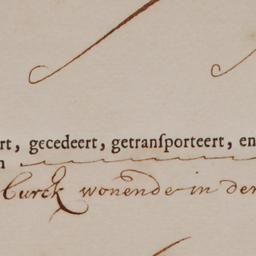 rt, gecedeert, getranſporteert, en
n
Curck wonende in der